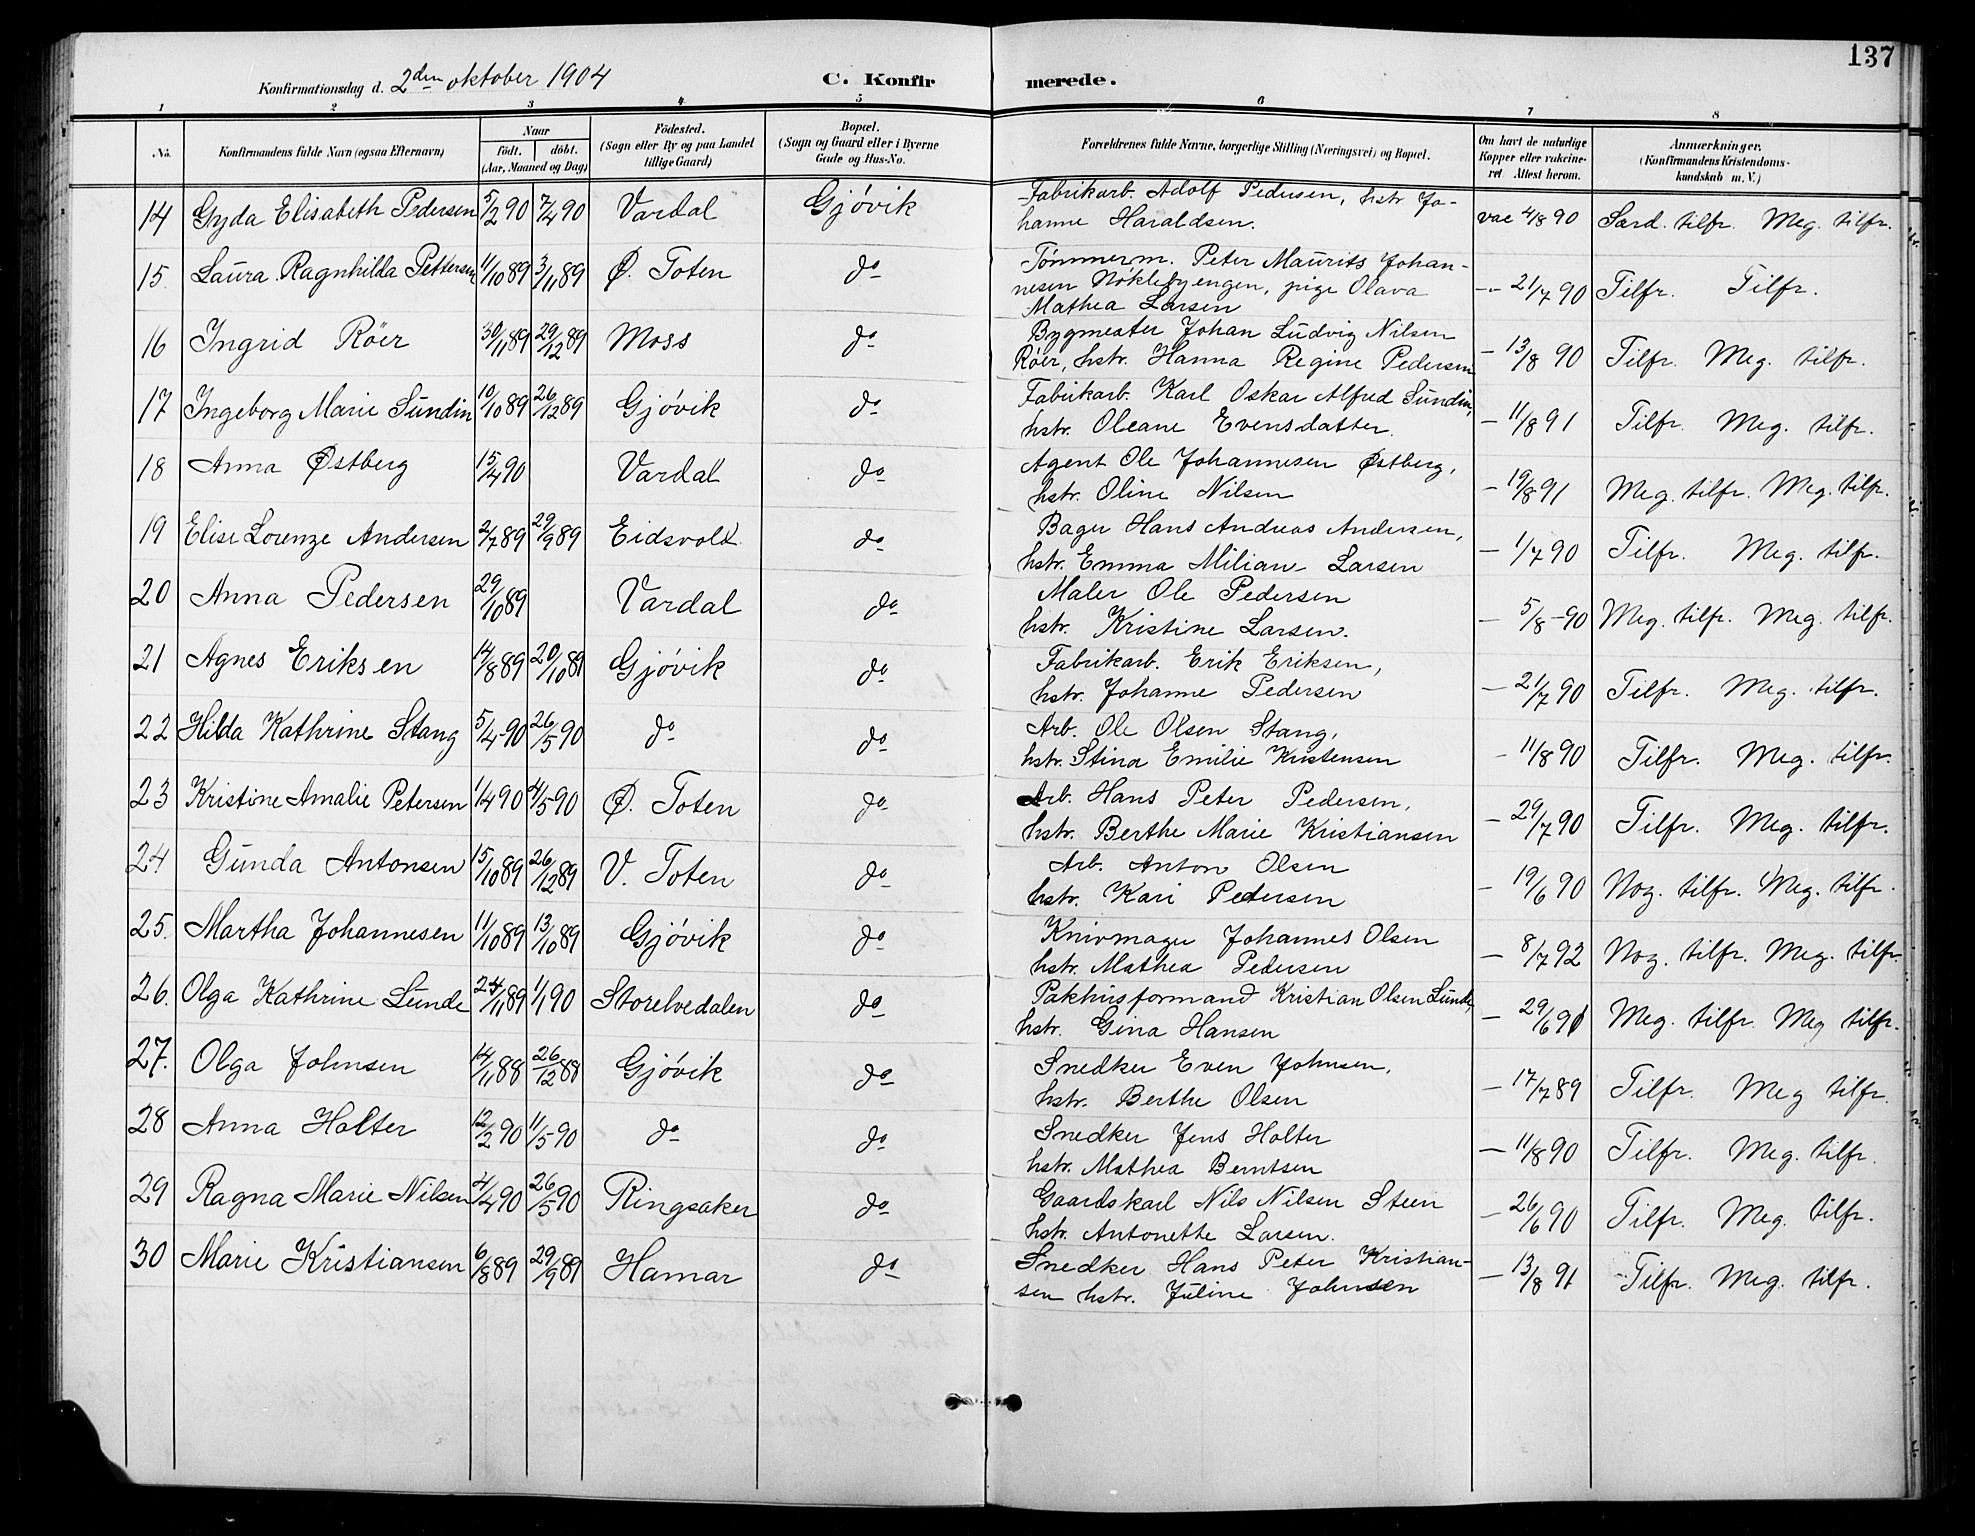 137
Konfirmationsdag d. 2den oktober 1904 C. Konfirmerede.
1 2 3 4 5 6 7 8
No. Konfirmandens fulde Navn (ogsaa Efternavn) Naar födt. döbt. (Aar, Maaned og Dag) Födested. (Sogn eller By og paa Landet tillige Gaard) Bopæl. (Sogn og Gaard eller i Byerne Gade og Hus-No. Forældrenes fulde Navne, borgerlige Stilling (Næringsvei) og Bopæl. Om havt de naturlige Kopper eller vakcineret Attest herom. Anmærkninger. (Konfirmandens Kristendomskundskab m. V.)
14 Gyda Elisabeth Pedersen 5/2 90 7/4 90 Vardal Gjøvik Fabrikarb. Adolf Pedersen, hstr Jo-
hanne Haraldsen. vac 4/8 90 Særd. tilfr. Meg. tilfr.
15. Laura Ragnhilda Pettersen 11/10 89 3/11 89 Ø. Toten do Tømmerm. Peter Maurits Johan-
nesen Nøklebyengen, pige Olava
Mathea Larsen -- 21/7 90 Tilfr. Tilfr.
16 Ingrid Röer 30/11 89 29/12 89 Moss do Bygmester Johan Ludvig Nilsen
Röer, hstr. Hanna Regine Pedersen - 13/8 90 Tilfr. Meg. tilfr.
17 Ingeborg Marie Sundin 10/10 89 26/12 89 Gjøvik do Fabrikarb. Karl Oskar Alfred Sundin,
hstr. Oleane Evensdatter. - 11/8 91 Tilfr. Meg. tilfr.
18 Anna Østberg 15/4 90 Vardal do Agent Ole Johannesen Østberg,
hstr. Oline Nilsen - 19/8 91 Meg. tilfr. Meg. tilfr.
19 Elise Lorenze Andersen 2/7 89 29/9 89 Eidsvold do Bager Hans Andreas Andersen,
hstr. Emma Miliane Larsen - 1/7 90 Tilfr. Meg. tilfr.
20 Anna Pedersen 29/10 89 Vardal do Maler Ole Pedersen
hstr. Kristine Larsen. - 5/8 -90 Meg. tilfr. Meg. tilfr.
21 Agnes Eriksen 14/8 89 20/10 89 Gjøvik do Fabrikarb. Erik Eriksen,
hstr. Johanne Pedersen - 21/7 90 Tilfr. Meg. tilfr.
22 Hilda Kathrine Stang 5/4 -90 26/5 90 do do Arb. Ole Olsen Stang,
hstr. Stina Emilie Kristensen - 11/8 90 Tilfr. Meg. tilfr.
23 Kristine Amalie Petersen 1/4 90 4/5 90 Ø. Toten do Arb. Hans Peter Pedersen,
hstr. Berthe Marie Kristiansen - 29/7 90 Tilfr. Meg. tilfr.
24 Gunda Antonsen 15/10 89 26/12 89 V. Toten do Arb. Anton Olsen
hstr. Kari Pedersen - 19/6 90 Nog. tilfr. Meg. tilfr.
25. Martha Johannesen 11/10 89 13/10 89 Gjøvik do Knivmager Johannes Olsen
hstr. Mathea Pedersen - 8/7 92 Nog. tilfr. Meg. tilfr.
26. Olga Kathrine Lunde 24/11 89 1/1 90 Storelvedalen do Pakhusformand Kristian Olsen Lunde,
hstr. Gina Hansen - 29/6 91 Meg. tilfr. Meg tilfr.
27. Olga Johnsen 14/11 88 26/12 88 Gjøvik do Snedker Even Johnsen,
hstr. Berthe Olsen - 17/7 89 Tilfr. Meg tilfr.
28 Anna Holter 12/2 90 11/5 90 do do Snedker Jens Holter
hstr. Mathea Berntsen - 11/8 90 Tilfr. Meg. tilfr.
29 Ragna Marie Nilsen 4/4 90 26/5 90 Ringsaker do Gaardskarl Nils Nilsen Steen
hstr. Antonette Larsen. - 26/6 90 Tilfr. Meg. tilfr.
30 Marie Kristiansen 6/8 89 29/9 89 Hamar do Snedker Hans Peter Kristian-
sen hstr. Juline Johnsen - 13/8 91 Tilfr. Meg. tilfr.